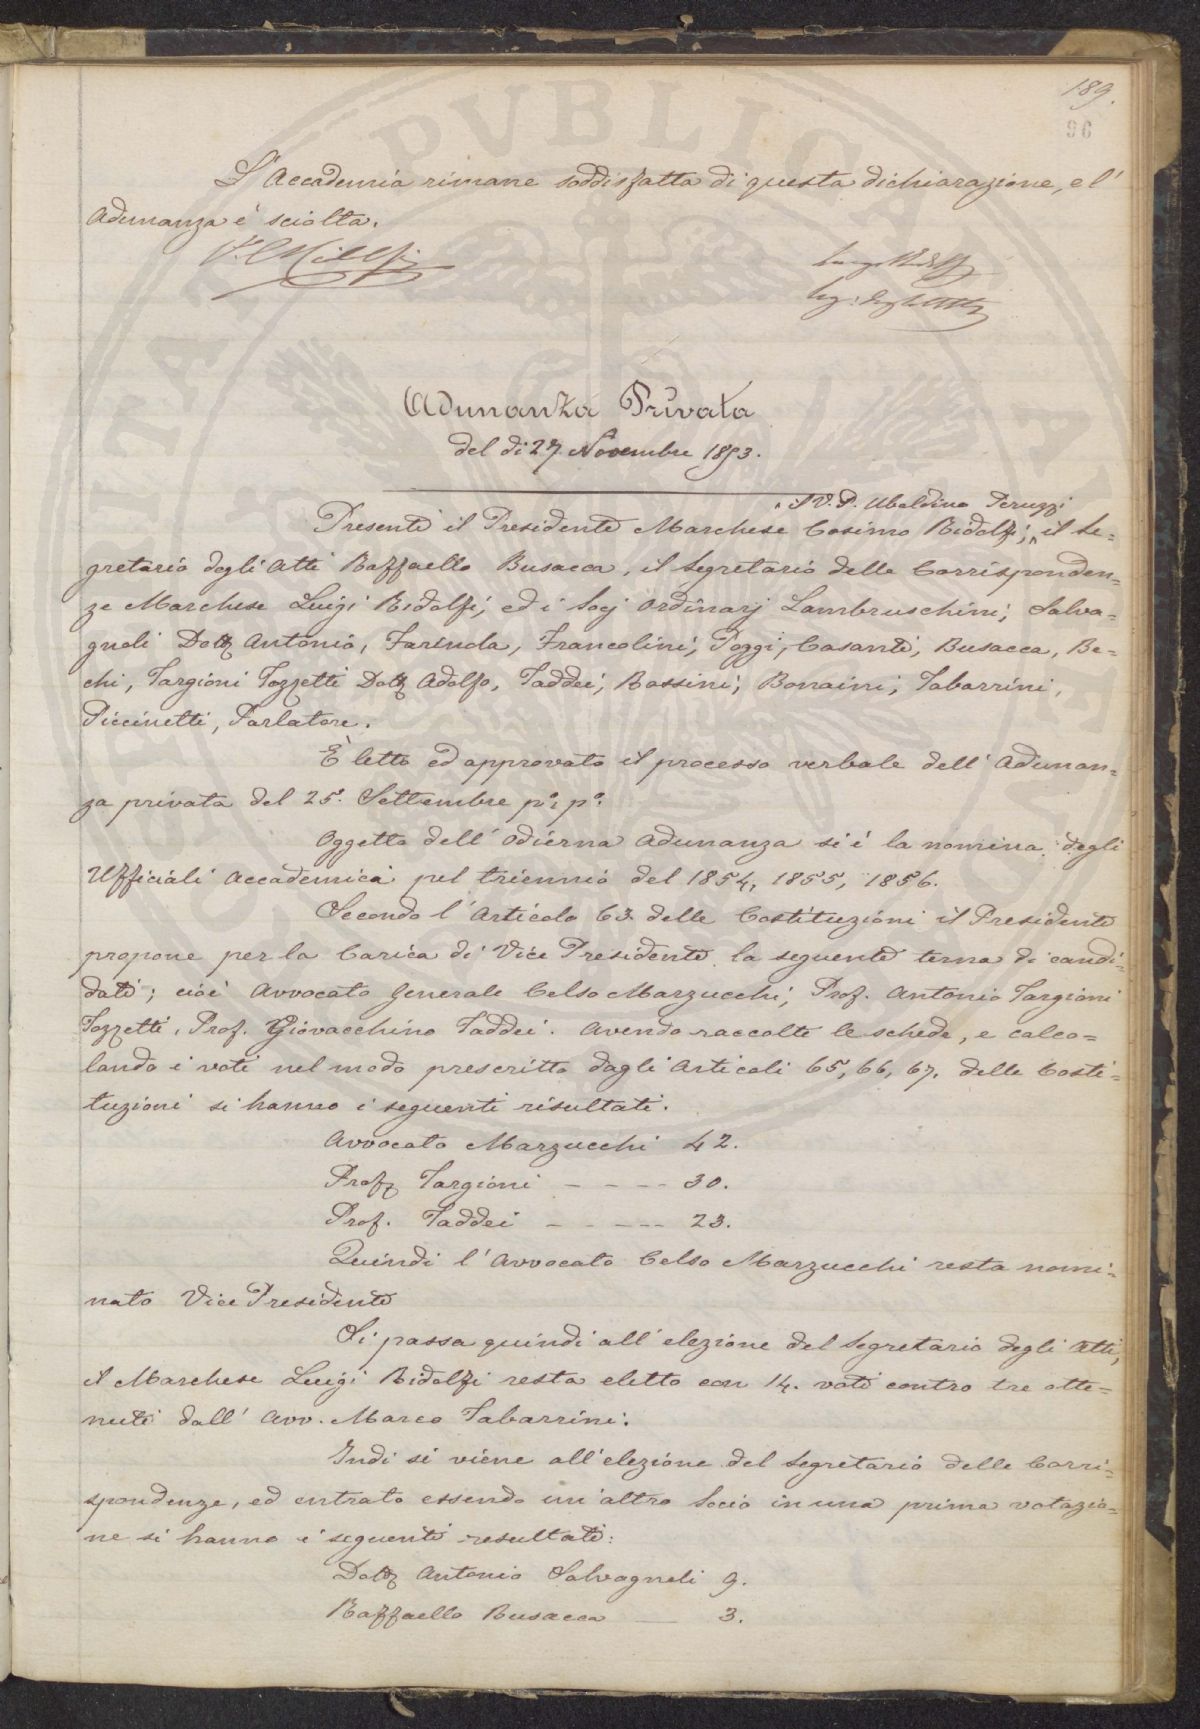 189.
96
L'Accademia rimane soddisfatta di questa dichiarazione, e l'
Adunanza è sciolta.
Adunanza Privata
del dì 27 Novembre 1853.
il V. P. Ubaldino Peruzzi
Presenti il Presidente Marchese Cosimo Ridolfi, il Se=
gretario degli Atti Raffaello Busacca, il Segretario delle Corrisponden=
ze Marchese Luigi Ridolfi, ed i Socj Ordinarj Lambruschini, Salva=
gnoli Dott Antonio, Farinola, Francolini, Poggi, Casanti, Busacca, Be=
chi, Targioni Tozzetti Dott Adolfo, Taddei, Rossini, Bonaini, Tabarrini,
Piccinetti, Parlatore.
È letto ed approvato il processo verbale dell'Adunan=
za privata del 25. Settembre p.° p.°
Oggetto dell'odierna Adunanza si è la nomina degli
Ufficiali Accademici pel triennio del 1854, 1855, 1856.
Secondo l'Articolo 63 delle Costituzioni il Presidente
propone per la Carica di Vice Presidente la seguente terna di candi=
dati; cioè Avvocato Generale Celso Marzucchi, Prof. Antonio Targioni
Tozzetti, Prof. Giovacchino Taddei. Avendo raccolte le schede, e calco=
lando i voti nel modo prescritto dagli Articoli 65, 66, 67. delle Costi=
tuzioni si hanno i seguenti risultati.
Avvocato Marzucchi 42.
Prof Targioni - - - - 30.
Prof. Taddei - - - - - 23.
Quindi l'Avvocato Celso Marzucchi resta nomi=
nato Vice Presidente
Si passa quindi all'elezione del Segretario degli Atti,
il Marchese Luigi Ridolfi resta eletto con 14. voti contro tre otte=
nuti dall'Avv. Marco Tabarrini.
Indi si viene all'elezione del Segretario delle Corri=
spondenze, ed entrato essendo un'altro Socio in una prima votazio=
ne si hanno i seguenti resultati:
Dott Antonio Salvagnoli 9.
Raffaello Busacca — 3.